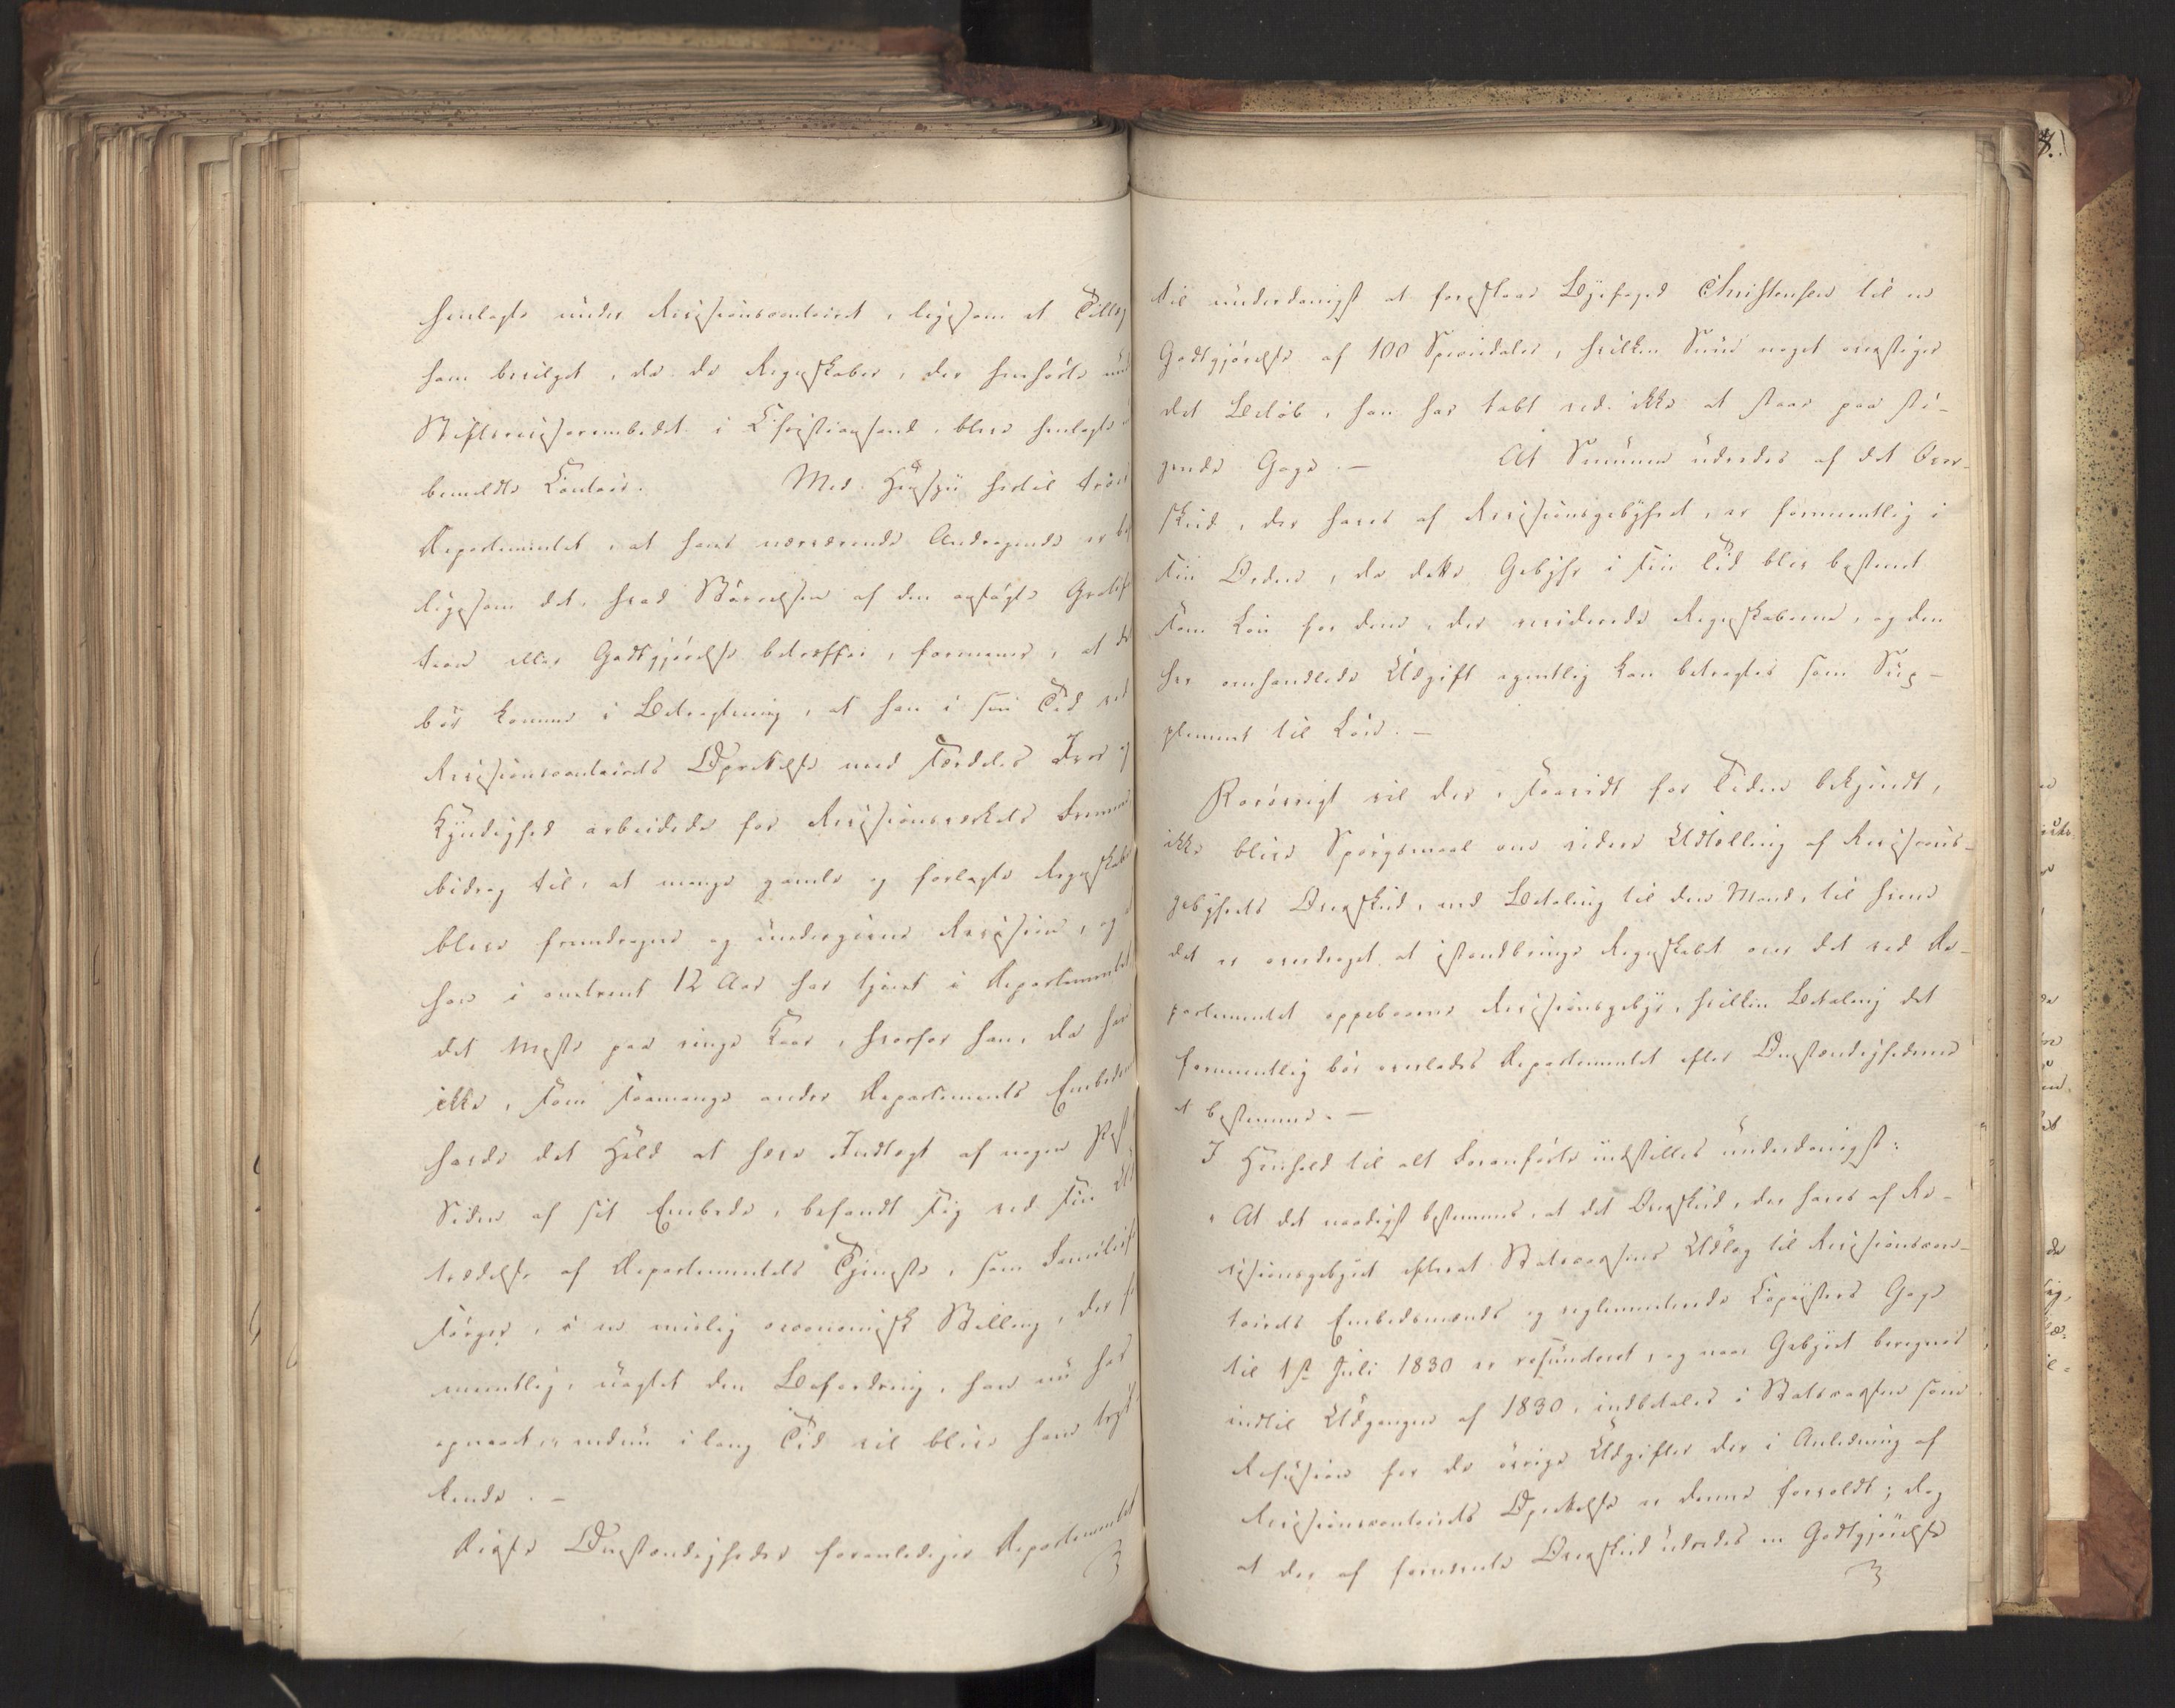 henlagte under Revisionscontoiret, ligesom et Tillæg
ham bevilget, da de Regnskaber, der henhørte und
Stiftsrevisorembedet i Christiansand, bleve henlagte
bemeldte Contoir. Med Hensyn hertil troer
Departementet, at hans nærværende Andragende er
ligesom det, hvad Størrelsen af den ansøgte Gratifi
tion eller Godtgjørelse betræffer, formener, at det
bør komme i Betragtning, at han i sin Tid ved
Revisionscontoirets Oprettelse med særdeles Iver og
Kyndighed arbeidede for Revisionsværkets Fremme
bidrog til, at mange gamle og forlagte Regnskaber
bleve fremdragne og undergivne Revision, og
han i omtrent 12 Aar har tjent i Departementet
det meste paa ringe Kaar, hvorfor han, da han
ikke, som saamange andre Departements Embedsm
havde det Held at have Indtægt af nogen
Siden af sit Embede, befandt sig ved sin Ud
trædelse af Departementets Tjeneste, som Familief
sørger, i en mislig oeconomisk Stilling, der
mentlig, uagtet den Befordring, han nu har
opnaaet, endnu i lang Tid vil blive ham tryk
kende. –
Disse Omstændigheder foranledige Departementet
til underdanigst at foreslaae Byefoged Christensen til en
Godtgjørelse af 100 Speciedaler, hvilken Sum noget overstiger
det Beløb, han har tabt ved ikke at staae paa sti-
gende Gage. – At Summen udredes af det Over-
skud, der haves af Revisionsgebyhret, er formeentlig i
sin Orden, da dette Gebyhr i sin Tid blev bestemt
som Løn for dem, der reviderede Regnskaberne, og den
her omhandlede Udgift egentlig kan betragtes som Sup-
plement til Løn. –
Forøvrigt vil der, saavidt for Tiden bekjendt,
ikke blive Spørgsmaal om videre Udtælling af Revisions-
gebyhrets Overskud, end Betaling til den Mand, til hvem
det er overdraget at istandbringe Regnskabet over det ved De-
partementet oppebaarne Revisionsgebyr, hvilken Betaling det
formeentlig bør overlades Departementet efter Omstændighederne
at bestemme. –
I Henhold til alt Foranførte indstilles underdanigst:
"At det naadigst bestemmes, at det Overskud, der haves af Re-
visionsgebyret efterat Statscassens Udlæg til Revisionscon-
toirets Embedsmænds og reglementerede Copiisters Gage
til 1ste Juli 1830 er refunderet, og naar Gebyret beregnes
indtil Udgangen af 1830, indbetales i Statscassen som
Refusion for de øvrige Udgifter der i Anledning af
Revisionscontoirets Oprettelse er denne forvoldt; dog
at der af fornævnte Overskud udredes en Godtgjørelse